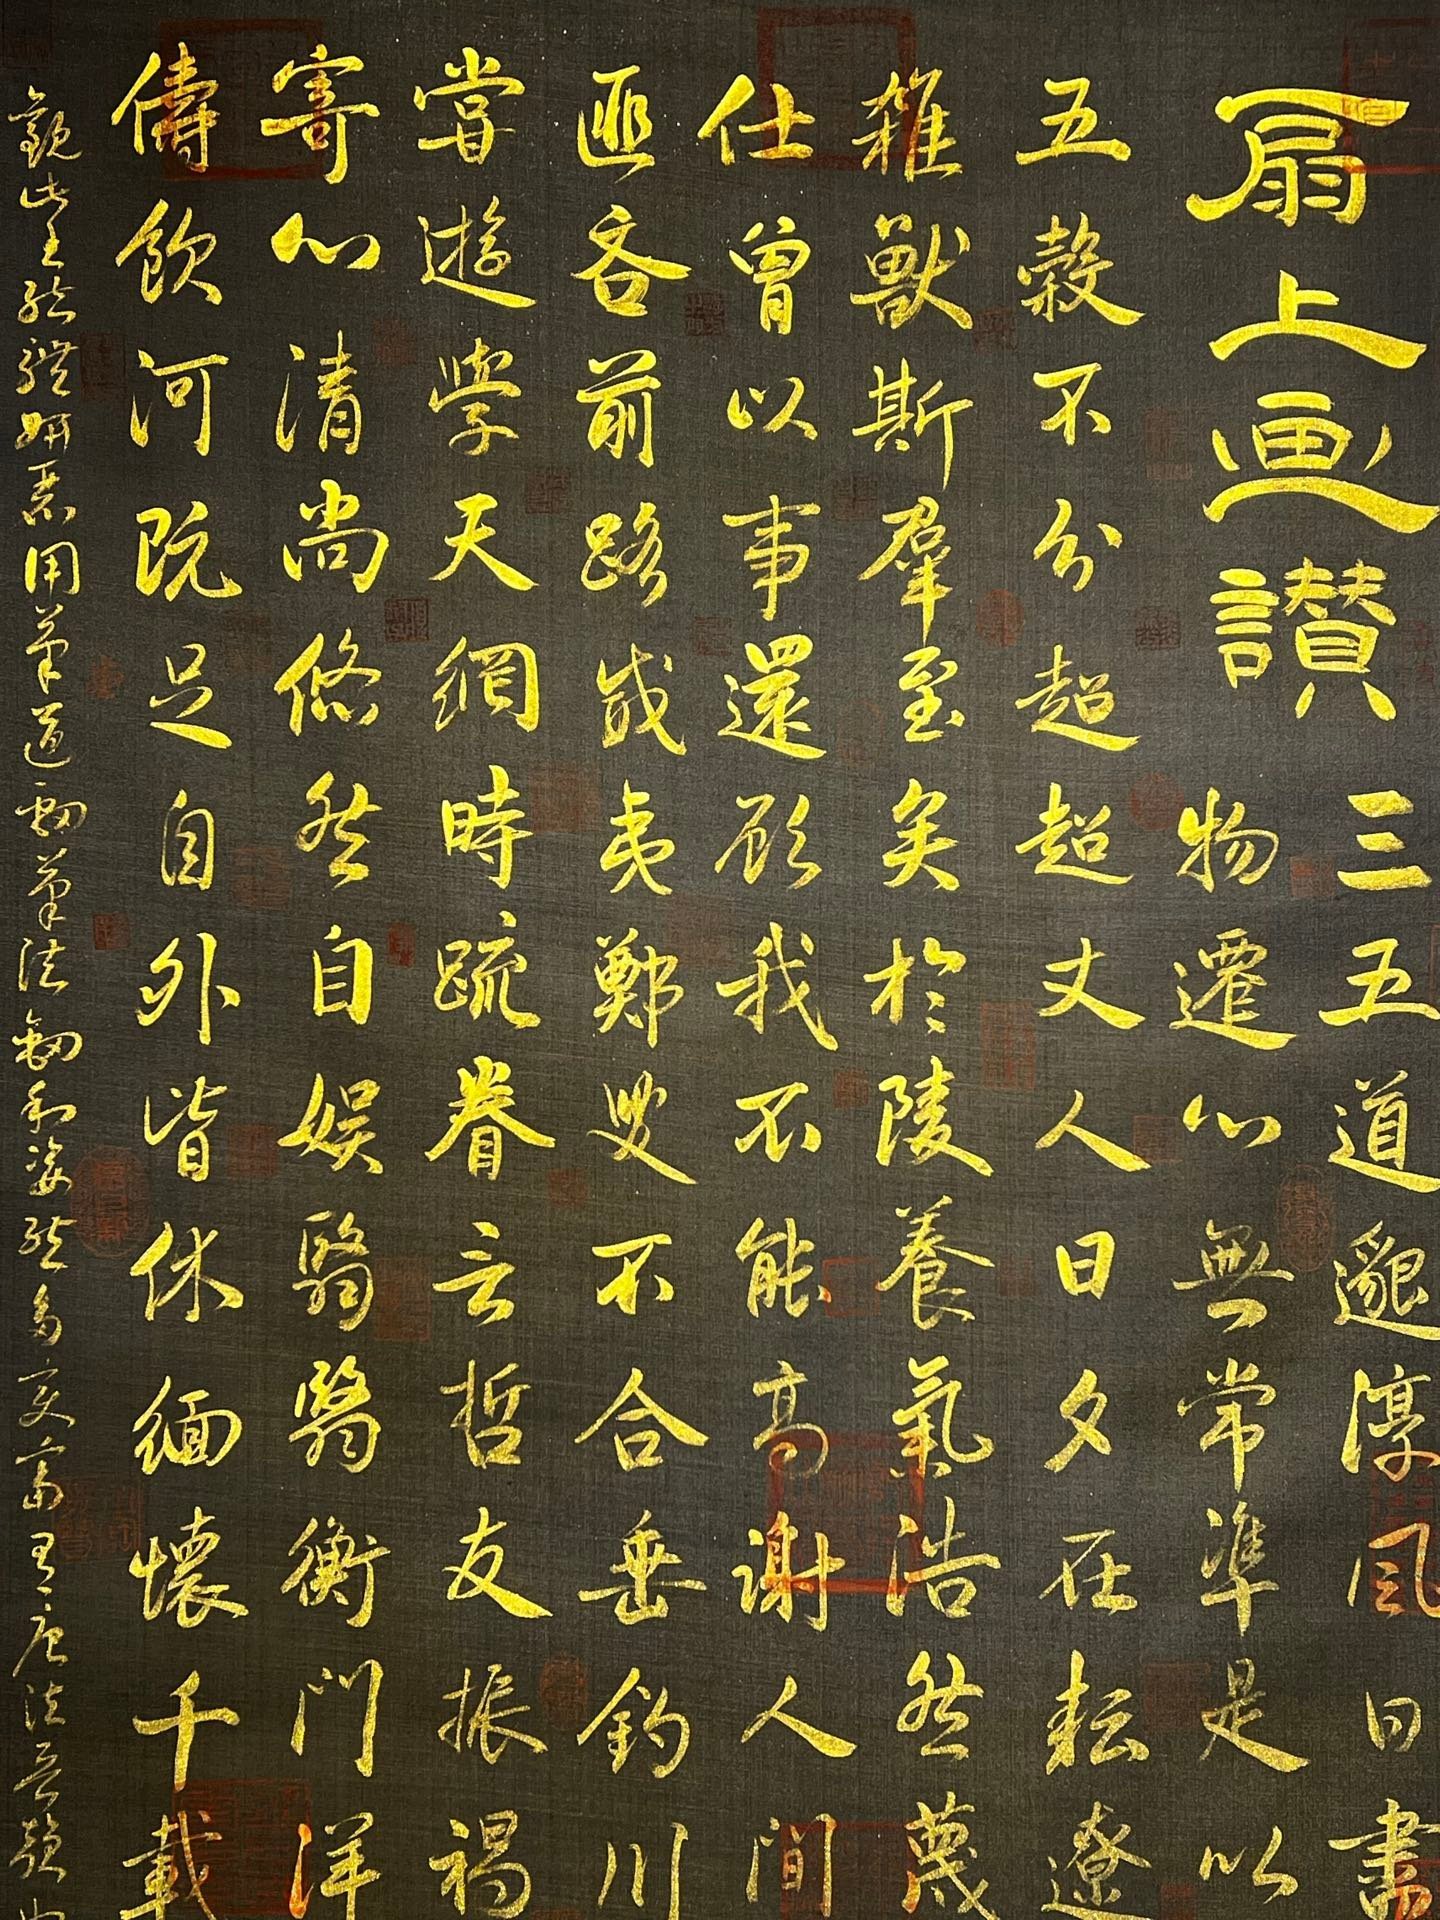 扇上畫讚
三五道邈淳風日盡
物遷心無常準是以
五穀不分超超丈人日夕在耘遼
雜獸斯羣至矣於陵養氣浩然蔑
仕曾以事還顧我不能高謝人間
匪吝前路威夷鄭叟不合垂釣川
嘗遊學天網時疏眷言哲友振褐
寄心清尚悠然自娛翳翳衡門洋
儔飲河既足自外皆休緬懷千載
觀此結體妍麗用筆遒勁筆法勁利姿態多變富有唐法